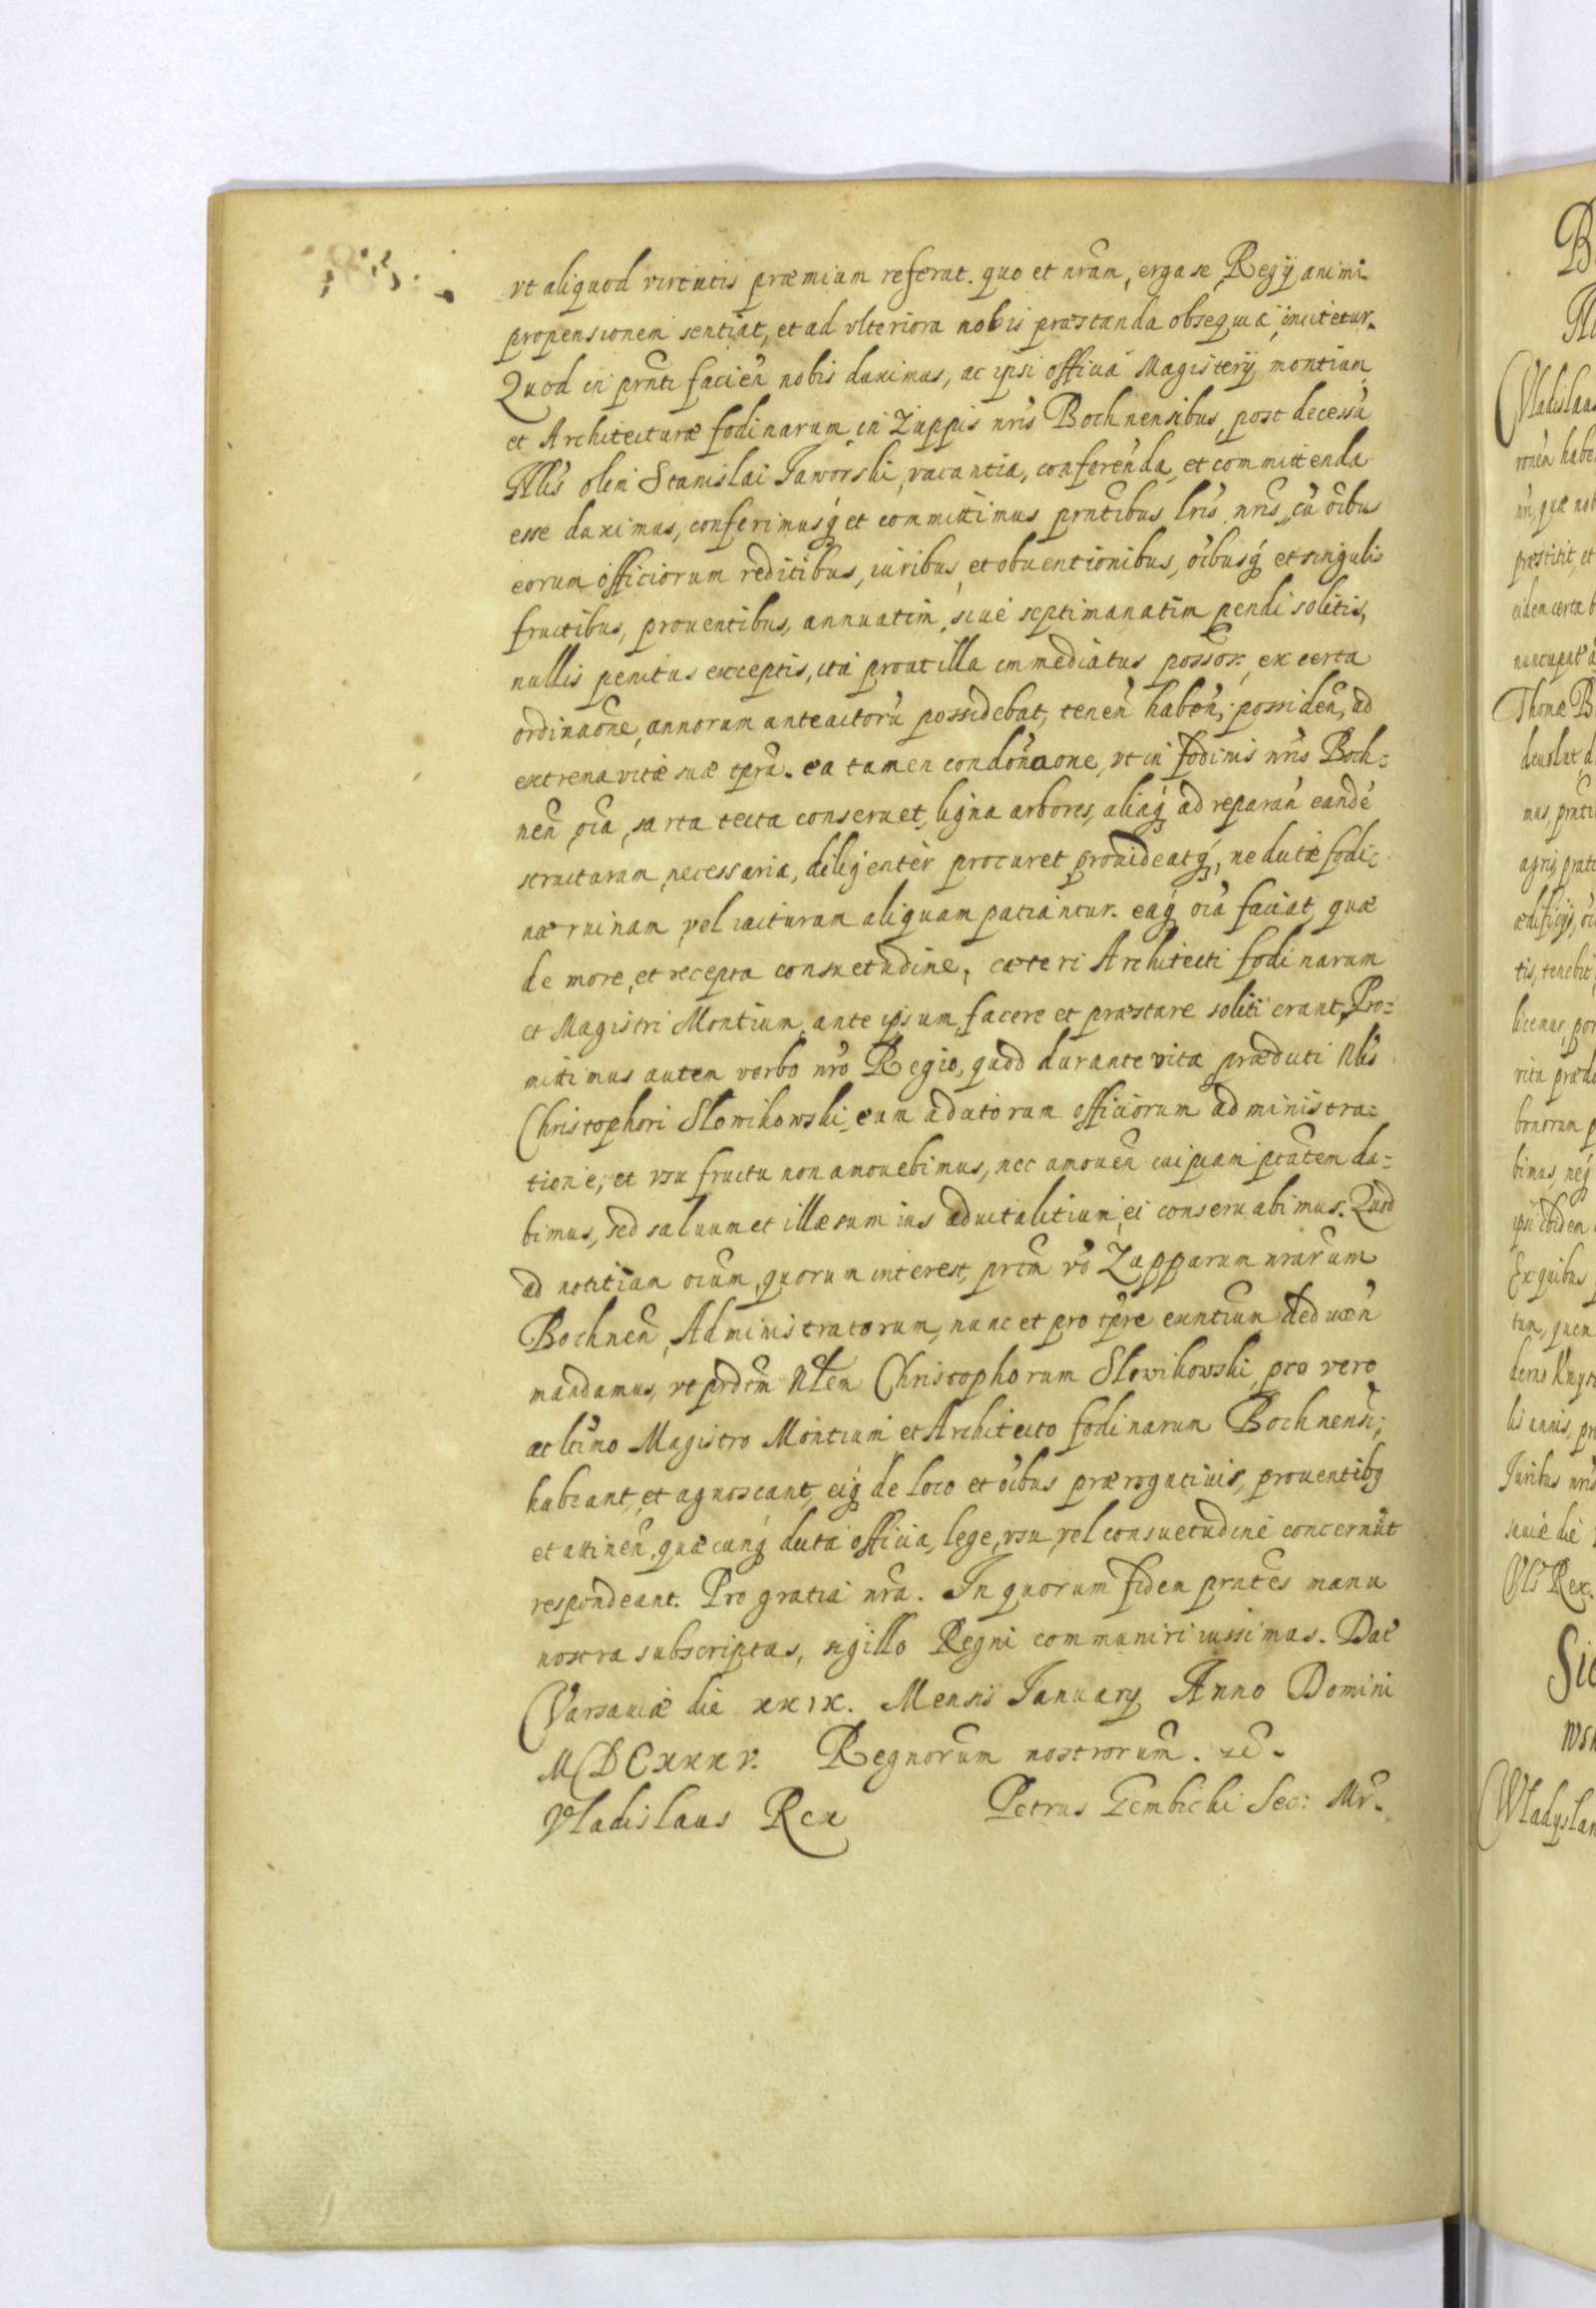 vt aliquod virtutis præmium referat. quo et nrãm, erga se, Regÿ animi
propensionem sentiat, et ad vlteriora nobis præstanda obsequia, incitetur.
Quod in prñti facien̄ nobis duximus, ac ipsi officia Magisterÿ montium
et Architecturæ fodinarum in Zuppis nrīs Bochnensibus, post decessū
Nlīs olim Stanislai Jaworski, vacantia, conferenda, et committenda
esse duximus, conferimusq́ et committimus prñtibus lrīs nrīs, cū oībus
eorum officiorum reditibus, iuribus, et obuentionibus, oībusq́ et singulis
fructibus, prouentibus, annuatim, siue septimanatim pendi solitis,
nullis penitus exceptis, ita prout illa immediatus possor̃, ex certa
ordinaōne, annorum anteactorū possidebat, tenen̄ haben̄, possiden̄, ad
extrema vitæ suæ tp̄ra. ea tamen condōnaone, vt in fodinis nrīs Boch=
nen̄ oīa, sarta tecta conseruet, ligna arbores, aliaq́ ad reparan̄ eandē
structuram, necessaria, diligenter procuret prouideatq́, ne dictæ fodi=
næ ruinam vel iacturam aliquam patiantur. eaq́ oīa faciat, quæ
de more, et recepta consuetudine, cæteri Architecti fodinarum
et Magistri Montium, ante ipsum, facere et præstare soliti erant. Pro=
mittimus autem verbo nrō Regio, quod durante vita prædicti Nlīs
Christophori Słowikowski, eum a dictorum officiorum administra=
tione, et vsu fructu non amouebimus, nec amouen̄ cuipiam ptātem da=
bimus, sed saluum et illæsum ius aduitalitium, ei conseruabimus. Quod
ad notitiam oīum, quorum interest, prtīm vō Zupparum nrārum
Bochnen̄, Administratorum, nunc et pro tp̄re exntium deducen̄
mandamus, vt prdc̄m Nlēm Christophorum Słowikowski, pro vero
ac ltīmo Magistro Montium et Architecto fodinarum Bochnensi,
habeant, et agnoscant, eiq́ de loco et oībus prærogatiuis, prouentibꝗ
et attinen̄, quæcunq́ dicta officia, lege, vsu, vel consuetudine concernūt
respondeant. Pro gratia nrā. In quorum fidem prñtes manu
nostra subscriptas, sigillo Regni communiri iussimus. Dat̄
Varsauiæ die xxix. Mensis Januarÿ Anno Domini
MDCxxxv. Regnorum nostrorum. etc̄.
Vladislaus Rex Petrus Gembicki Sec: Mr̄.